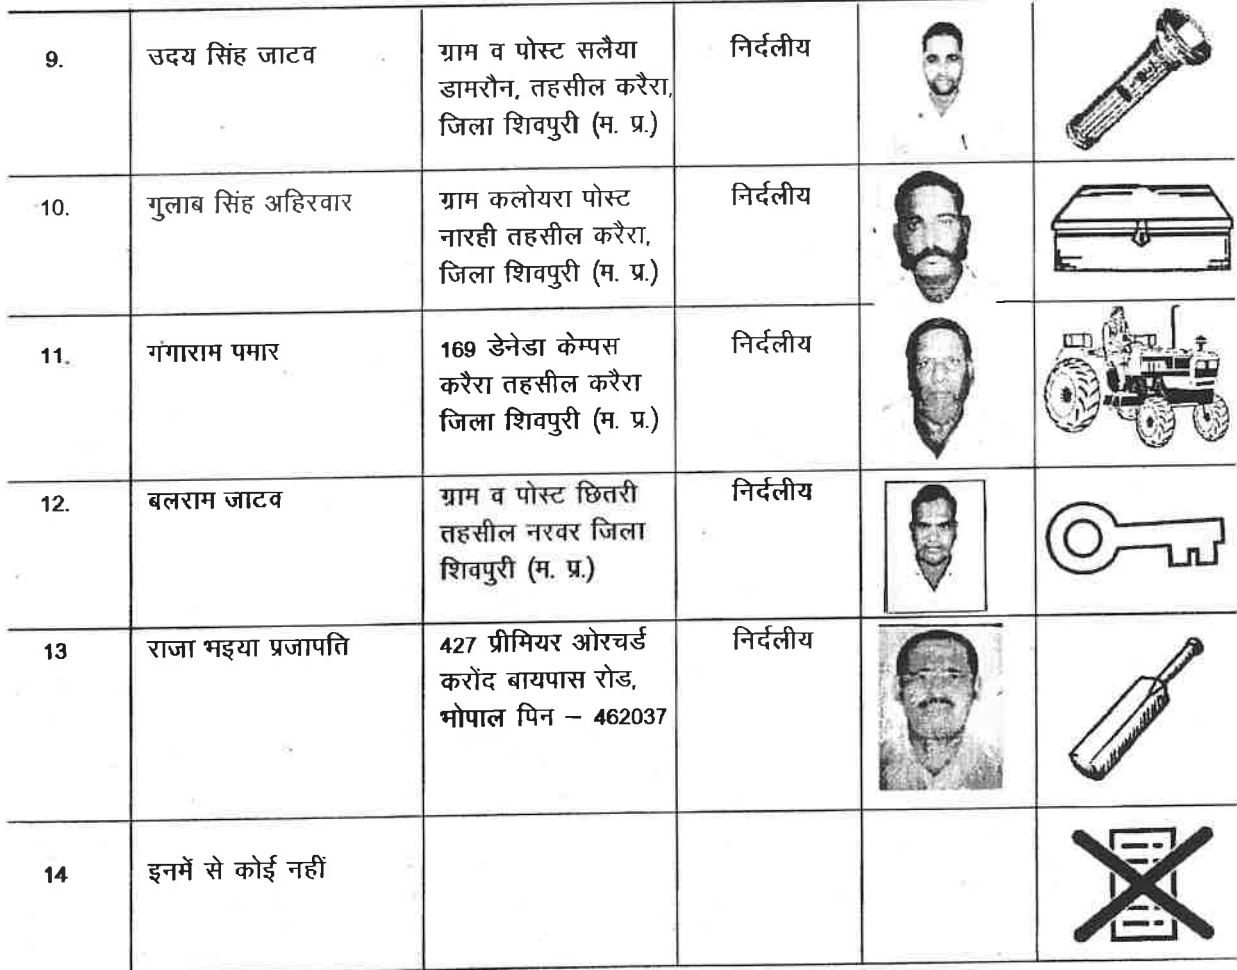 9.
उदय सिंह जाटव
ग्राम व पोस्ट सलैया
डामरौन, तहसील करैरा,
जिला शिवपुरी (म. प्र.)
निर्दलीय
10.
गुलाब सिंह अहिरवार
ग्राम कलोयरा पोस्ट
नारही तहसील करैरा,
जिला शिवपुरी (म. प्र.)
निर्दलीय
11.
गंगाराम पमार
169 डेनेडा केम्पस
करैरा तहसील करैरा
जिला शिवपुरी (म. प्र.)
निर्दलीय
12.
बलराम जाटव
ग्राम व पोस्ट छितरी
तहसील नरवर जिला
शिवपुरी (म. प्र.)
निर्दलीय
13
राजा भइया प्रजापति
427 प्रीमियर ओरचर्ड
करोंद बायपास रोड,
भोपाल पिन – 462037
निर्दलीय
14
इनमें से कोई नहीं